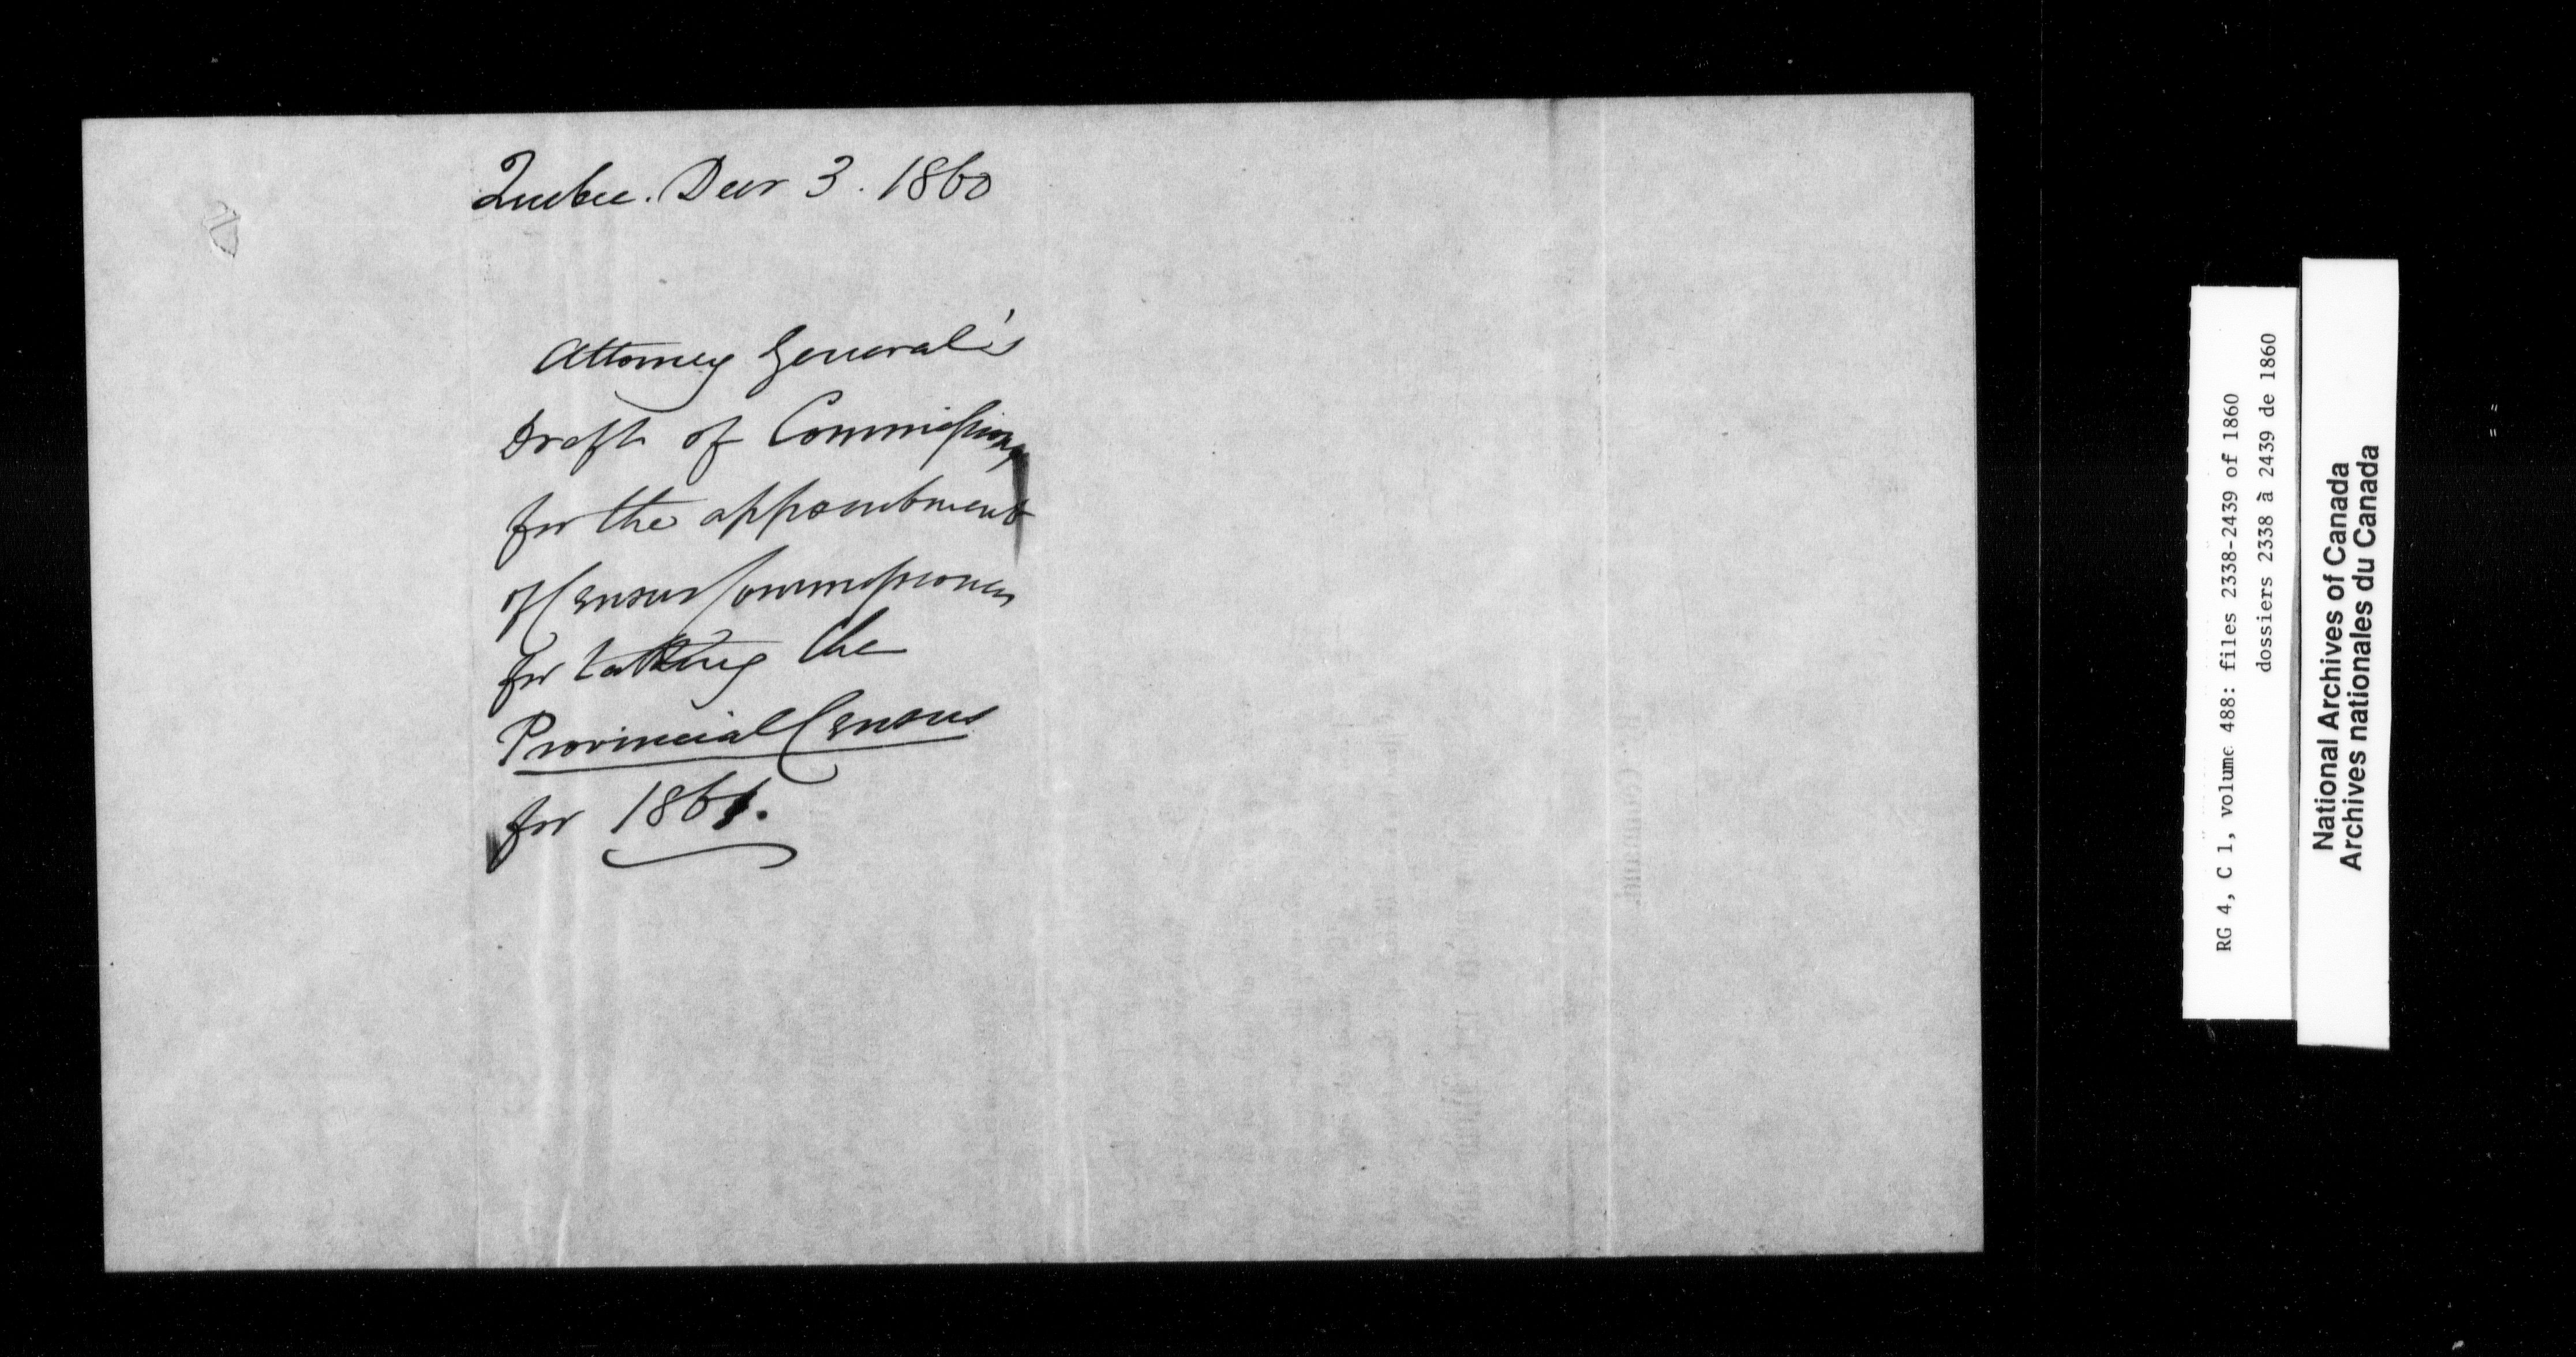 Quebec. Decr 3. 1860
Attorney General's
Draft of Commissions
for the appointment
of Census Commissioners
for taking the
Provincial Census
for 1861.
RG 4, C 1, volume 488: files 2338-2439 of 1860
dossiers 2338 à 2439 de 1860
National Archives of Canada
Archives nationales du Canada